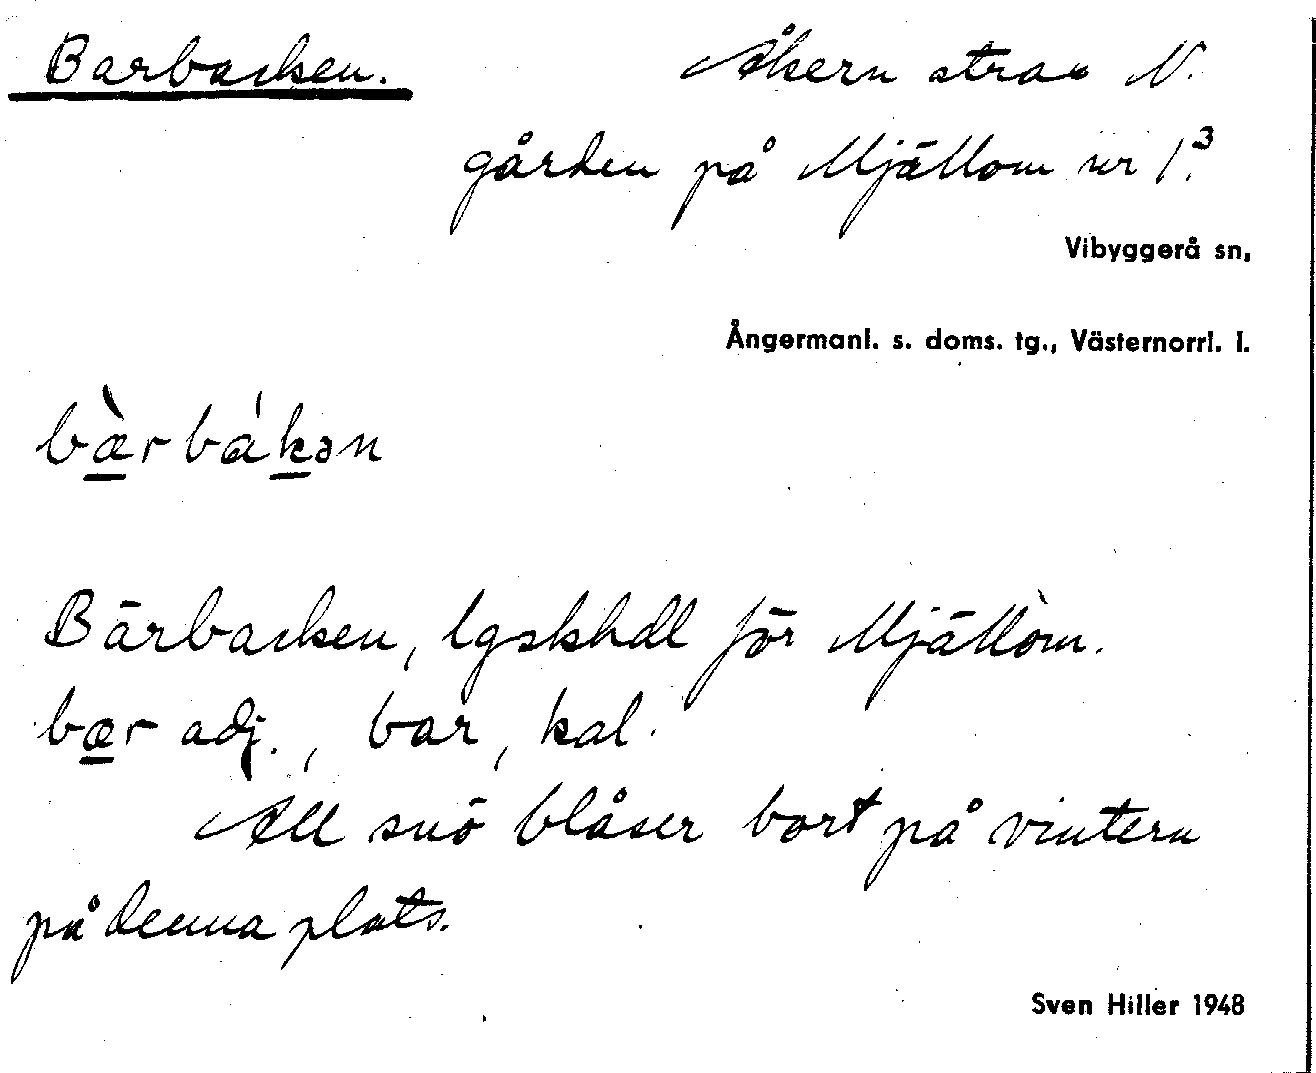 Barbacken.
Åkern strax N.
gården på Mjällom nr 1³.
Vibyggerå sn,
Ångermanl. s. doms. tg., Västernorrl. l.
bæ̀rbákən
Bärbacken, lgskhdl för Mjällom.
bær adj., bar, kal.
All snö blåser bort på vintern
på denna plats.
Sven Hiller 1948